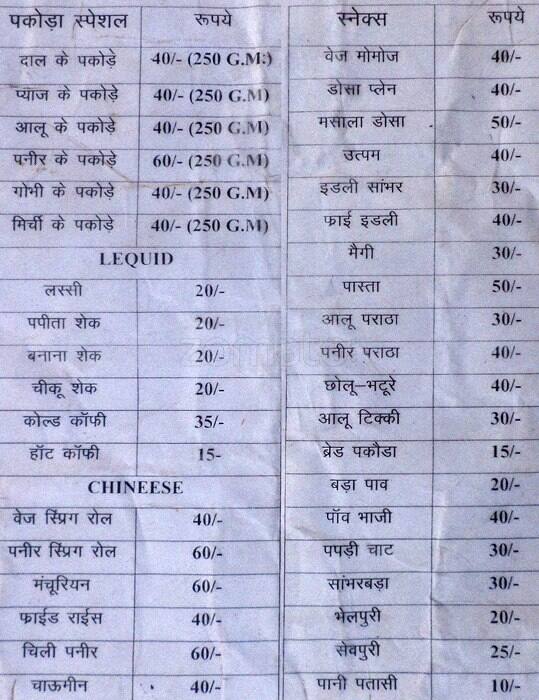 पकोड़ा स्पेशल रूपये
दाल के पकोड़े 40/- (250 G.M.)
प्याज के पकोड़े 40/- (250 G.M)
आलू के पकोड़े 40/- (250 G.M)
पनीर के पकोड़े 60/- (250 G.M)
गोभी के पकोड़े 40/- (250 G.M)
मिर्ची के पकोड़े 40/- (250 G.M)
LEQUID
लस्सी 20/-
पपीता शेक 20/-
बनाना शेक 20/-
चीकू शेक 20/-
कोल्ड कॉफी 35/-
हॉट कॉफी 15-
CHINEESE
वेज स्प्रिग रोल 40/-
पनीर स्प्रिग रोल 60/-
मंचूरियन 60/-
फाईड राईस 40/-
चिली पनीर 60/-
चाऊमीन 40/-
स्नेक्स रूपये
वेज मोमोज 40/-
डोसा प्लेन 40/-
मसाला डोसा 50/-
उत्पम 40/-
इडली सांभर 30/-
फाई इडली 40/-
मैगी 30/-
पास्ता 50/-
आलू पराठा 30/-
पनीर पराठा 40/-
छोलू–भटूरे 40/-
आलू टिक्की 30/-
ब्रेड पकौडा 15/-
बड़ा पाव 20/-
पॉव भाजी 40/-
पपड़ी चाट 30/-
सांभरबड़ा 30/-
भेलपुरी 20/-
सेवपुरी 25/-
पानी पतासी 10/-